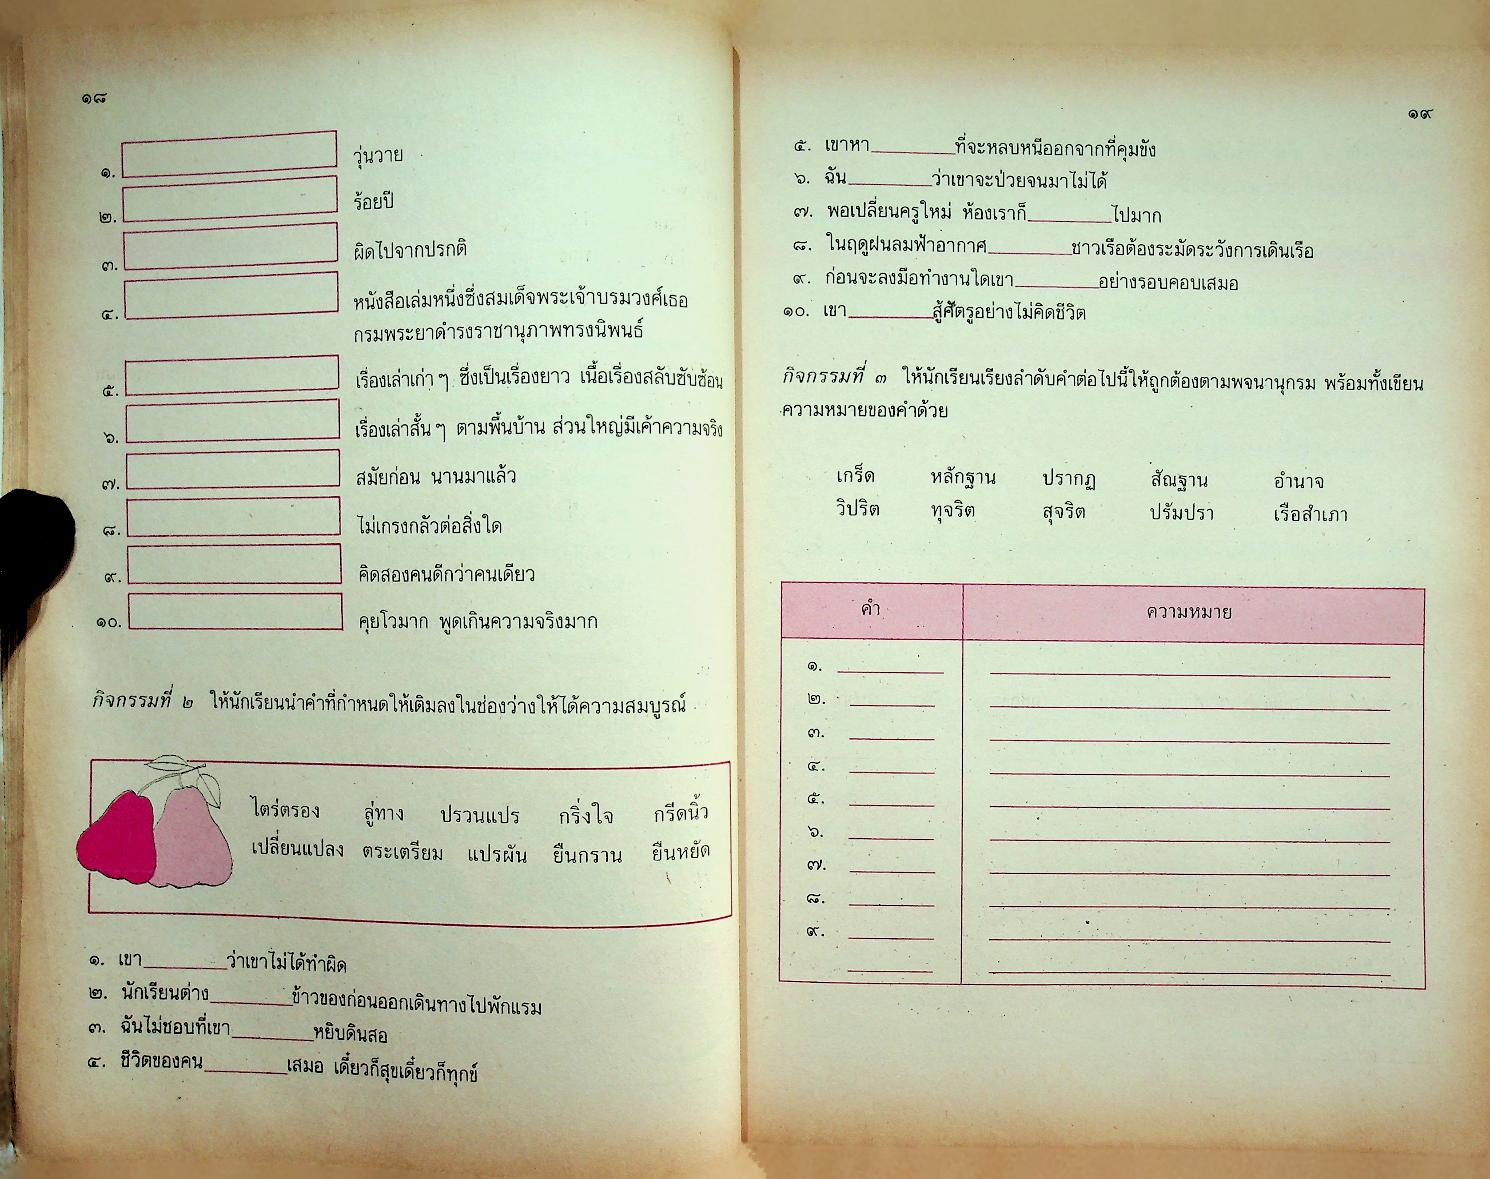 ๑๘
๑. วุ่นวาย
๒. ร้อยปี
๓. ผิดไปจากปรกติ
๔. หนังสือเล่มหนึ่งซึ่งสมเด็จพระเจ้าบรมวงศ์เธอ
กรมพระยาดำรงราชานุภาพทรงนิพนธ์
๕. เรื่องเล่าเก่า ๆ ซึ่งเป็นเรื่องยาว เนื้อเรื่องสลับซับซ้อน
๖. เรื่องเล่าสั้น ๆ ตามพื้นบ้าน ส่วนใหญ่มีเค้าความจริง
๗. สมัยก่อน นานมาแล้ว
๘. ไม่เกรงกลัวต่อสิ่งใด
๙. คิดสองคนดีกว่าคนเดียว
๑๐. คุยโวมาก พูดเกินความจริงมาก
กิจกรรมที่ ๒ ให้นักเรียนนำคำที่กำหนดให้เติมลงในช่องว่างให้ได้ความสมบูรณ์
ไตร่ตรอง ลู่ทาง ปรวนแปร กริ่งใจ กรีดนิ้ว
เปลี่ยนแปลง ตระเตรียม แปรผัน ยืนกราน ยืนหยัด
๑. เขา________ว่าเขาไม่ได้ทำผิด
๒. นักเรียนต่าง________ข้าวของก่อนออกเดินทางไปพักแรม
๓. ฉันไม่ชอบที่เขา________หยิบดินสอ
๔. ชีวิตของคน________เสมอ เดี๋ยวก็สุขเดี๋ยวก็ทุกข์
๑๙
๕. เขาหา________ที่จะหลบหนีออกจากที่คุมขัง
๖. ฉัน________ว่าเขาจะป่วยจนมาไม่ได้
๗. พอเปลี่ยนครูใหม่ ห้องเราก็________ไปมาก
๘. ในฤดูฝนลมฟ้าอากาศ________ชาวเรือต้องระมัดระวังการเดินเรือ
๙. ก่อนจะลงมือทำงานใดเขา________อย่างรอบคอบเสมอ
๑๐. เขา________สู้ศัตรูอย่างไม่คิดชีวิต
กิจกรรมที่ ๓ ให้นักเรียนเรียงลำดับคำต่อไปนี้ให้ถูกต้องตามพจนานุกรม พร้อมทั้งเขียน
ความหมายของคำด้วย
เกร็ด หลักฐาน ปรากฏ สัณฐาน อำนาจ
วิปริต ทุจริต สุจริต ปรัมปรา เรือสำเภา
คำ ความหมาย
๑.
๒.
๓.
๔.
๕.
๖.
๗.
๘.
๙.